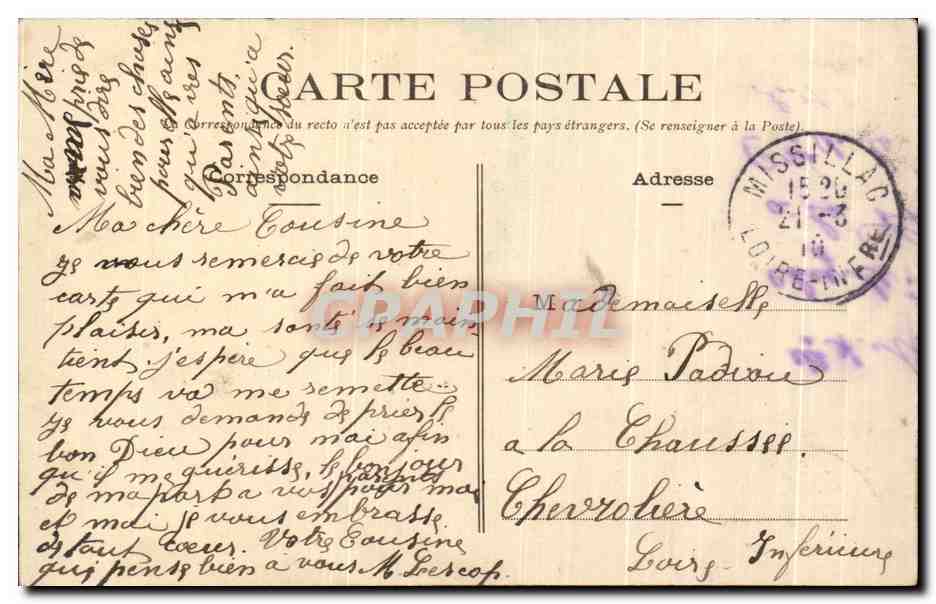 Ma Mère
prie de
vous dire
bien des choses
pour elle ainsi
qu'a vos
Parents.
ainsi qu'a
votre sœur.
CARTE POSTALE
La correspondance du recto n'est pas acceptée par tous les pays étrangers. (Se renseigner à la Poste).
Correspondance
Adresse
MISSILLAC
15 20
21 -3
10
LOIRE-INFRE
Ma chère Cousine
je vous remercie de votre
carte qui m'a fait bien
plaisir, ma santé se main
tient j'espère que le beau
temps va me remettre
je vous demande de prier le
bon Dieu pour moi afin
qu'il me guérisse, le bonjour
de ma part a vos parents pour moi
et moi je vous embrasse
de tout cœur. Votre Cousine
qui pense bien a vous M. Lescop.
Mademoiselle
Marie Padiou
a la Chaussée
Chevrolière
Loire-Inférieure
GRAPHIL